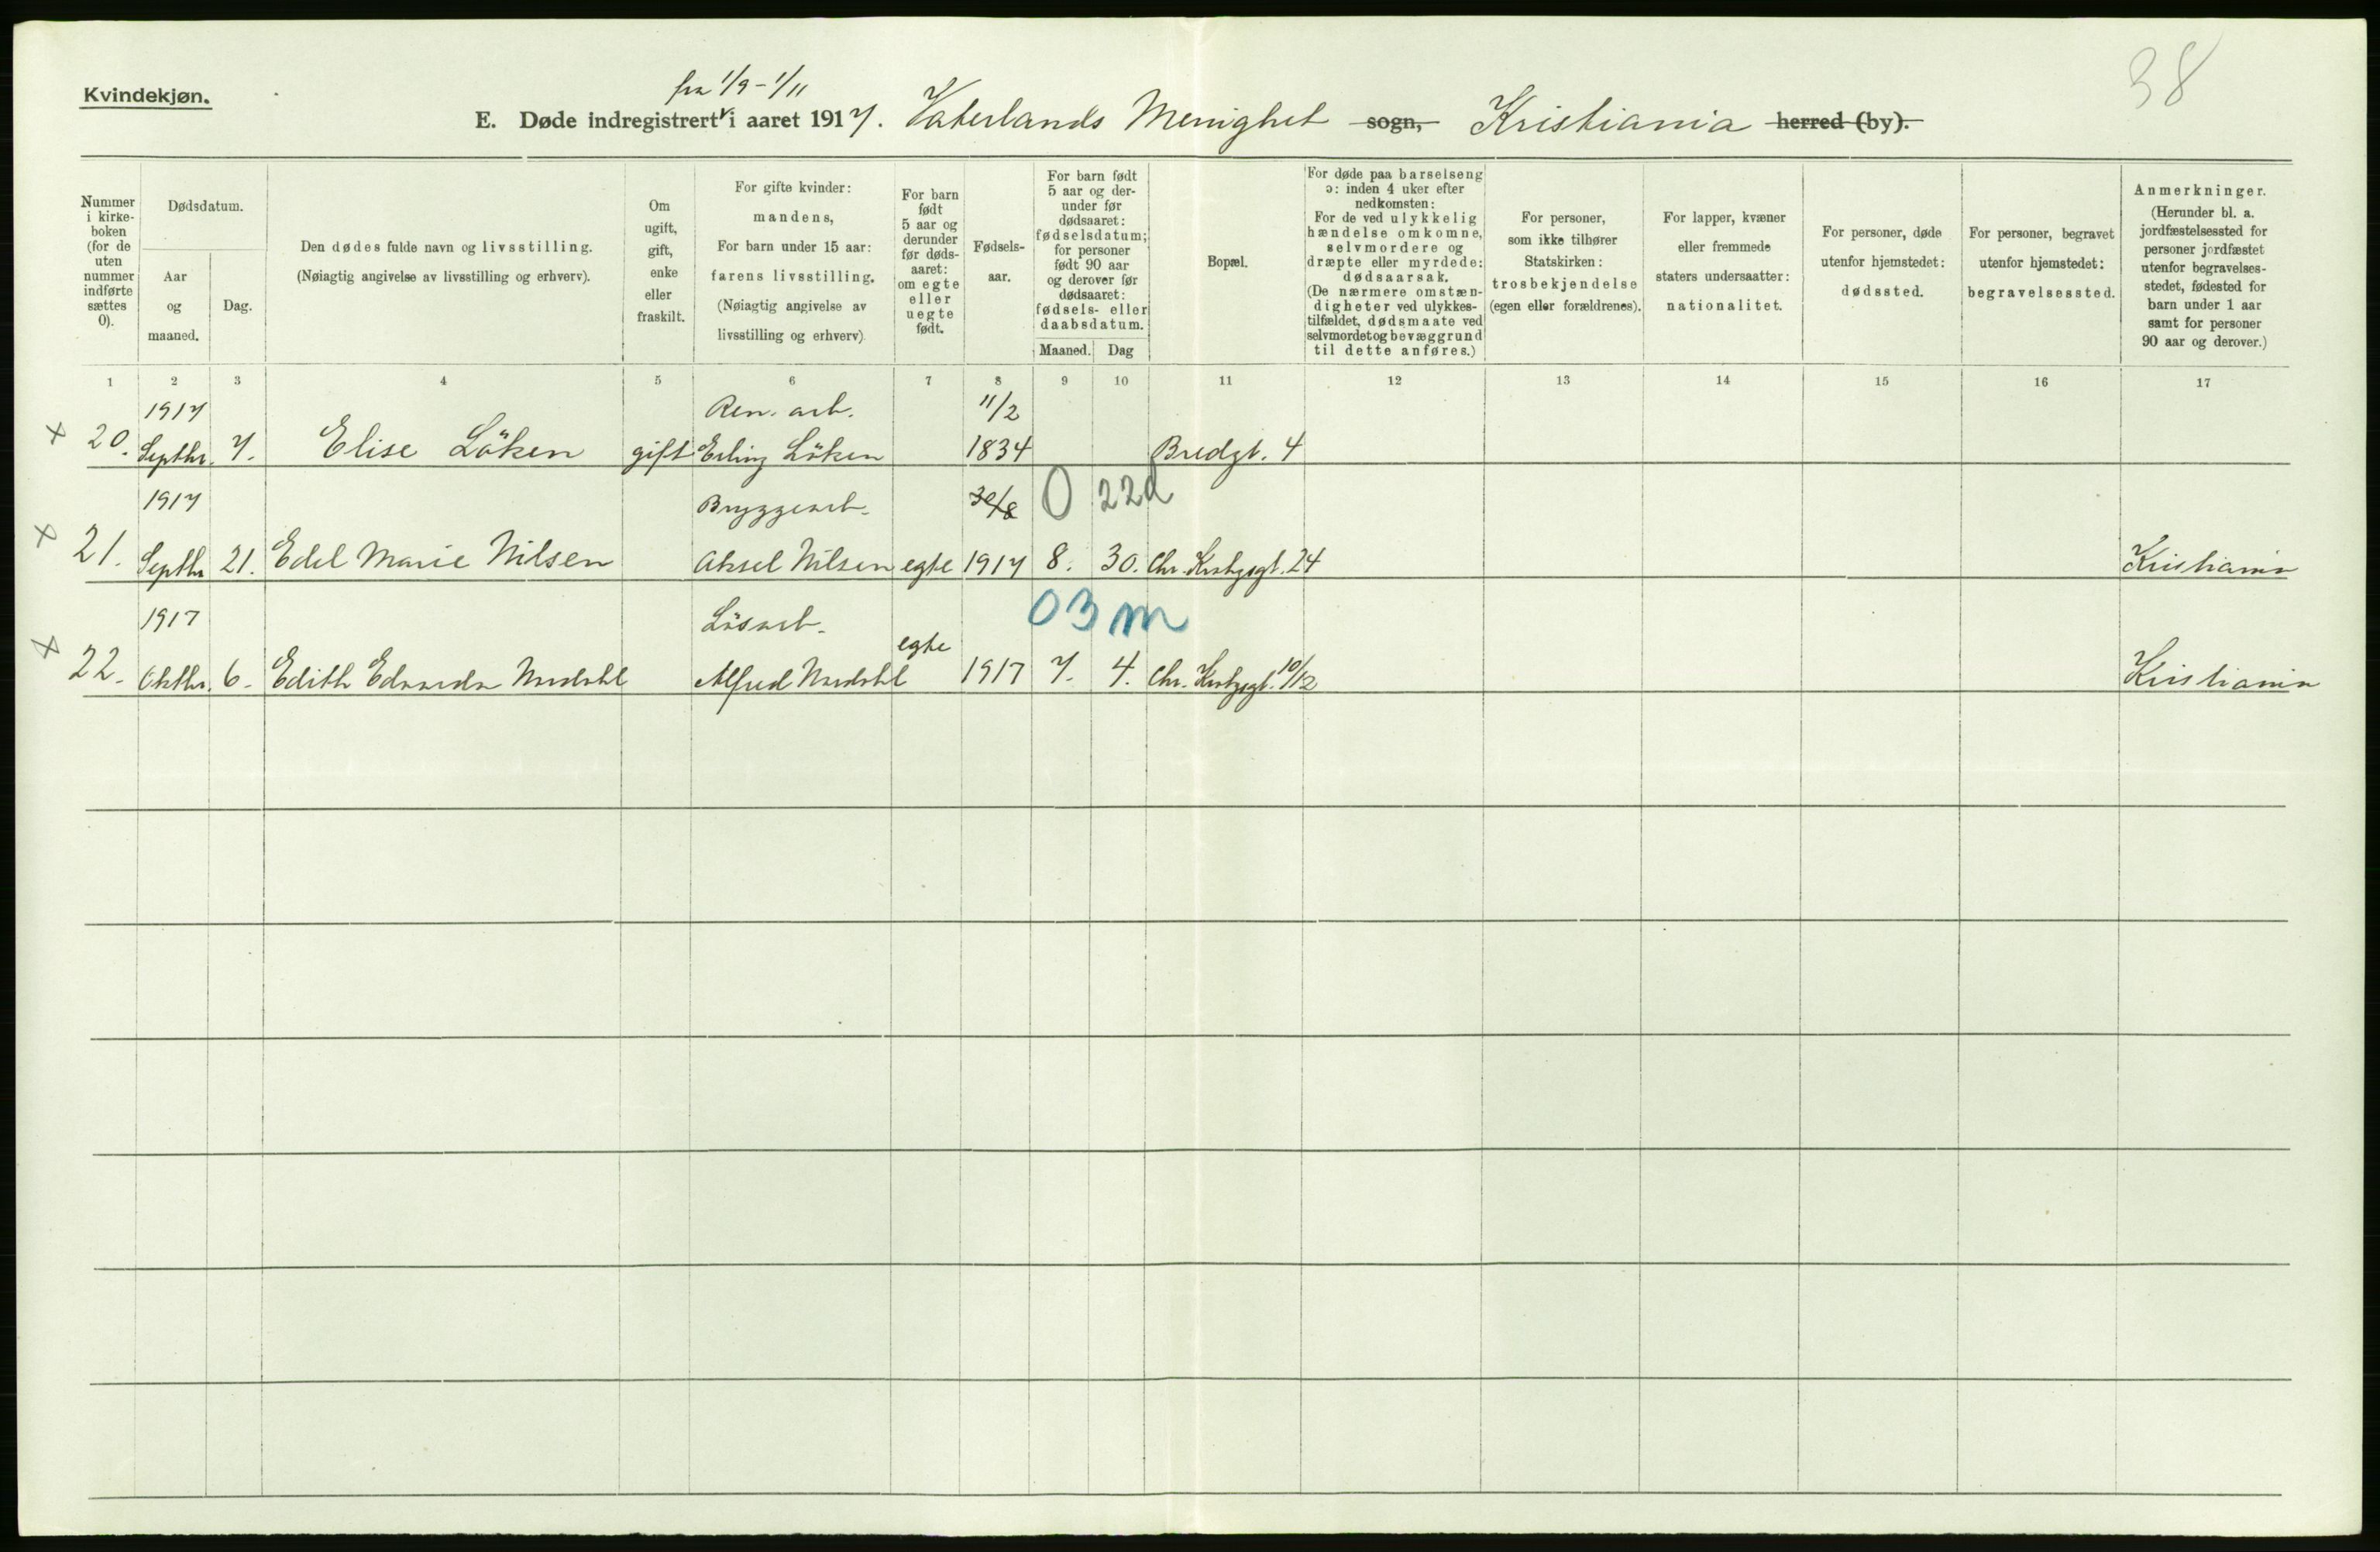 38
Kvindekjøn.
fra 1/9 - 1/11
E. Døde indregistrert i aaret 1917. Vaterlands Menighet sogn, Kristiania herred (by).
Nummer i kirke- boken (for de uten nummer indførte sættes 0).
Dødsdatum.
Aar og maaned.
Dag.
Den dødes fulde navn og livsstilling.
(Nøiagtig angivelse av livsstilling og erhverv).
Om ugift, gift, enke eller fraskilt.
For gifte kvinder:
mandens,
For barn under 15 aar:
farens livsstilling.
(Nøiagtig angivelse av
livsstilling og erhverv)
For barn født 5 aar og derunder før døds- aaret: om egte eller uegte født.
Fødsels- aar.
For barn født 5 aar og der- under før dødsaaret: fødselsdatum; for personer født 90 aar og derover før dødsaaret: fødsels- eller daabsdatum.
Maaned. Dag
Bopæl.
For døde paa barselseng
ɔ: inden 4 uker efter
nedkomsten:
For de ved ulykkelig
hændelse omkomne,
selvmordere og
dræpte eller myrdede:
dødsaarsak.
(De nærmere omstæn-
digheter ved ulykkes-
tilfældet, dødsmaate ved
selvmordet og bevæggrund
til dette anføres.)
For personer,
som ikke tilhører
Statskirken:
trosbekjendelse
(egen eller forældrenes).
For lapper, kvæner
eller fremmede
staters undersaatter:
nationalitet.
For personer, døde
utenfor hjemstedet:
dødssted.
For personer, begravet
utenfor hjemstedet:
begravelsessted.
Anmerkninger.
(Herunder bl. a.
jordfæstelsessted for
personer jordfæstet
utenfor begravelses-
stedet, fødested for
barn under 1 aar
samt for personer
90 aar og derover.)
1 2 3 4 5 6 7 8 9 10 11 12 13 14 15 16 17
1917 Ren. arb. 11/2
x 20. Septbr. 7. Elise Löken gift Erling Löken 1834 Bredgt. 4
1917 Bryggearb. 30/8 0 22d
x 21. Septbr 21. Edel Marie Nilsen Aksel Nilsen egte 1917 8. 30. Chr. Krohgsgt. 24 Kristiania
1917 Lösarb. 03m
x 22. Oktbr. 6. Edith Edvarda Nordahl Alfred Nordahl egte 1917 7. 4. Chr. Krohgsgt. 10/12 Kristiania